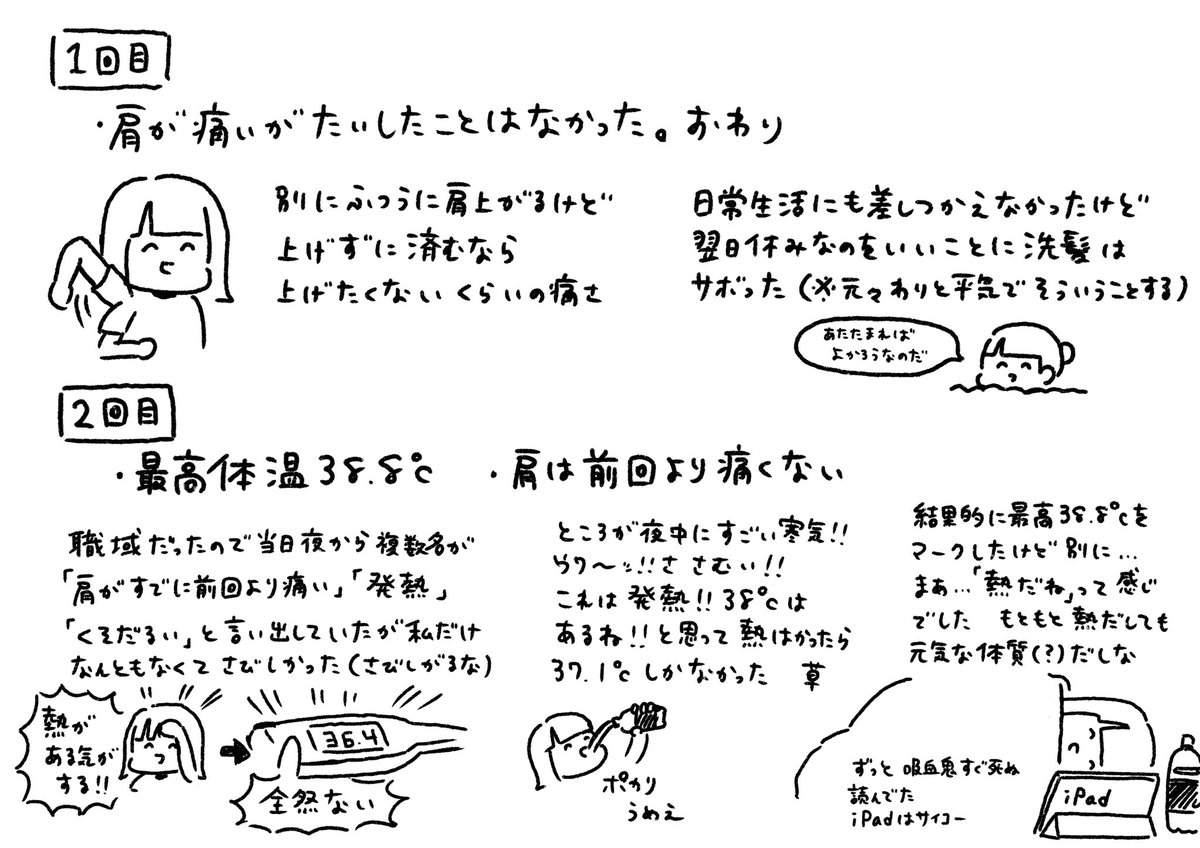 1回目
・肩が痛いがたいしたことはなかった。おわり
別にふつうに肩上がるけど
上げずに済むなら
上げたくないくらいの痛さ
日常生活にも差しつかえなかったけど
翌日休みなのをいいことに洗髪は
サボった(※元々わりと平気でそういうことする)
あたたまれば
よかろうなのだ
2回目
・最高体温38.8℃
・肩は前回より痛くない
職域だったので当日夜から複数名が
「肩がすでに前回より痛い」「発熱」
「くそだるい」と言い出していたが私だけ
なんともなくてさびしかった(さびしがるな)
熱が
ある気が
する!!
36.4
全然ない
ところが夜中にすごい寒気!!
ウワ〜ッ!!ささむい!!
これは発熱!!38℃は
あるね!!と思って熱はかったら
37.1℃しかなかった 草
ポカリ
うめえ
結果的に最高38.8℃を
マークしたけど別に…
まぁ…「熱だね」って感じ
でした もともと熱だしても
元気な体質(?)だしな
ずっと吸血鬼すぐ死ぬ
読んでた
iPadはサイコー
iPad